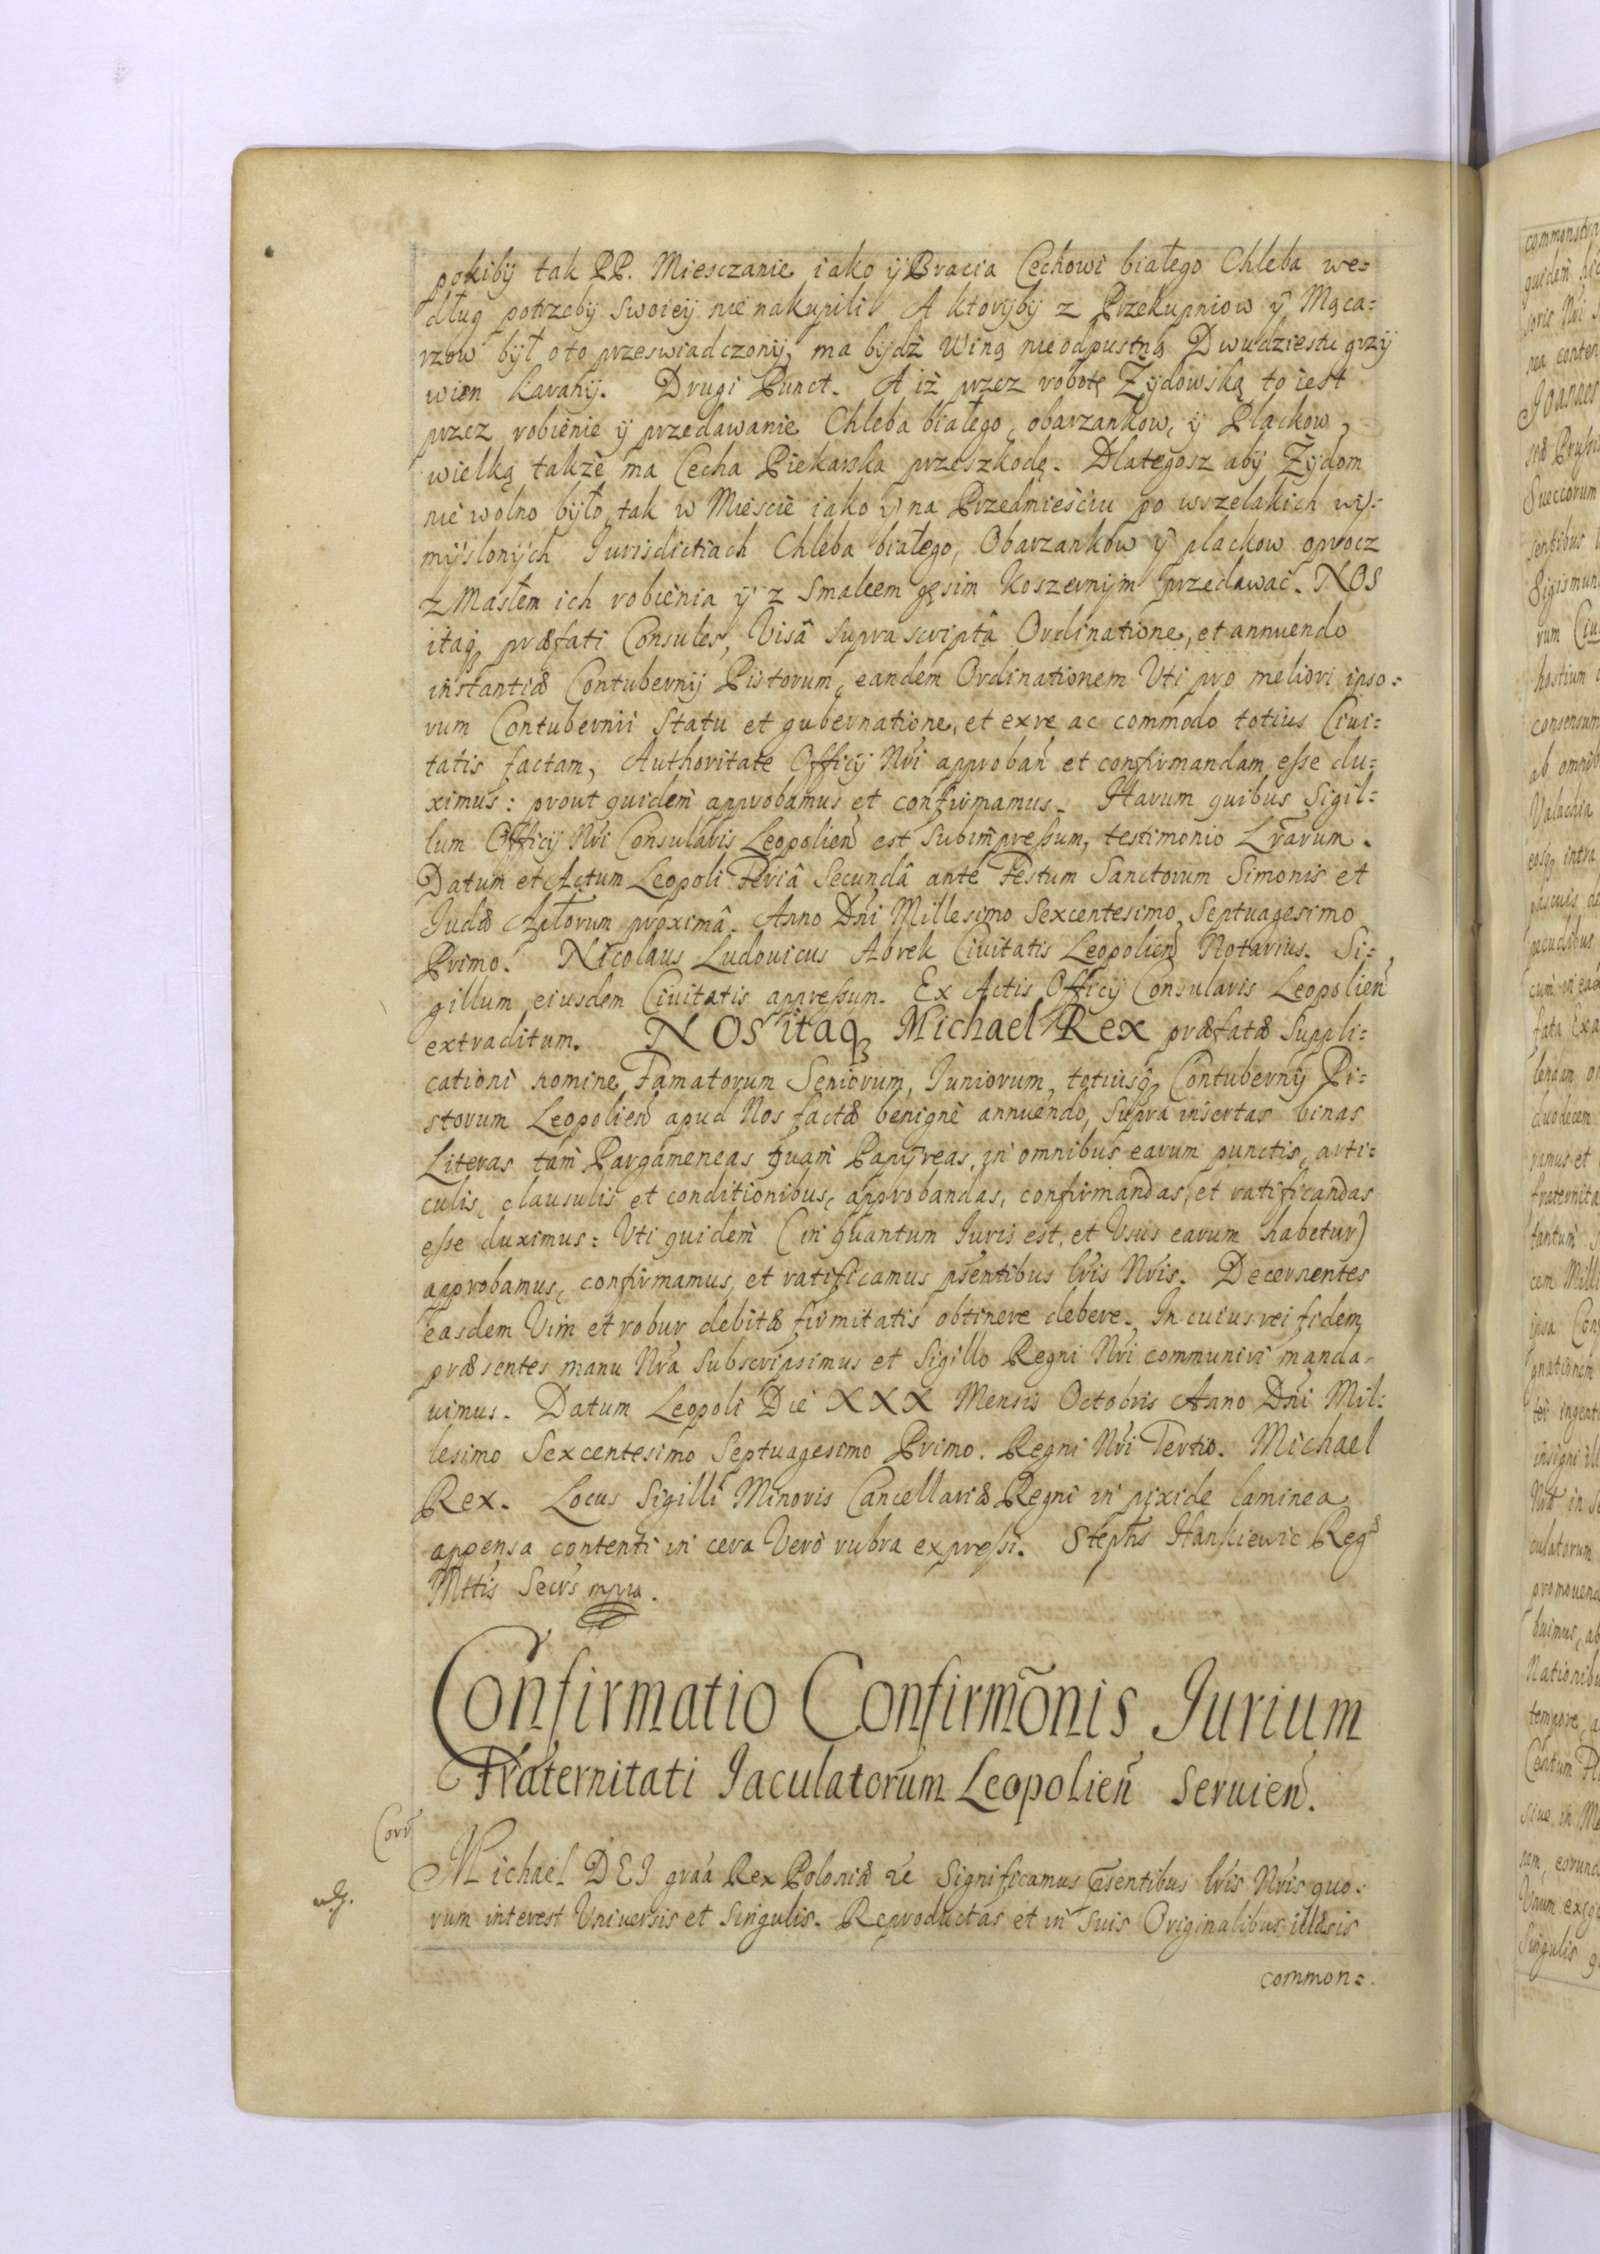 pokiby tak PP. Miesczanie iako ÿ Bracia Cechowi białego Chleba we=
dług potrzeby swoieÿ nie nakupili. A ktoryby z Przekupniow ÿ Mąca=
rzow był oto przeswiadczonÿ, ma bÿdź Winą nieodpustną Dwudziestu grzÿ
wien karanÿ. Drugi Punct. A iż przez robotę Żÿdowską to iest
przez robienie ÿ przedawanie Chleba białego, obarzankow, ÿ Plackow,
wielką także ma Cecha Piekarska przeszkodę. Dlategosz abÿ Żÿdom
nie wolno bÿło tak w Miescie iako ÿ na Przedmieściu po wszelakich wÿ=
mÿslonÿch Jurisdictiach Chleba białego, Obarzankow ÿ plackow oprocz
z Masłem ich robienia ÿ z Smalcem gęsim koszernÿm przedawać. NOS
itaq præfati Consules, Visâ supra scriptâ Ordinatione, et annuendo
instantiæ Contubernÿ Pistorum, eandem Ordinationem Uti pro meliori ipso=
rum Contubernii Statu et gubernatione, et ex re ac commodo totius Ciui=
tatis factam, Authoritate Officÿ Nri approban et confirmandam esse du=
ximus: prout quidem approbamus et confirmamus. Harum quibus Sigil=
lum Officÿ Nri Consularis Leopolien est Subimpressum, testimonio Lrarum.
Datum et Actum Leopoli Feriâ Secundâ ante Festum Sanctorum Simonis et
Judæ Aplorum proximâ. Anno Dni Millesimo Sexcentesimo, Septuagesimo
Primo. Nicolaus Ludovicus Aorek Ciuitatis Leopolien Notarius. Si=
gillum eiusdem Ciuitatis appressum. Ex Actis Officÿ Consularis Leopolien
extraditum. NOS itaq Michael Rex præfatæ Suppli=
cationi nomine Famatorum Seniorum, Iuniorum, totiusq Contubernÿ Pi=
storum Leopolien apud Nos factæ benignè annuendo, Supra insertas binas
Literas tam Pargameneas quam Papÿreas, in omnibus earum punctis, arti=
culis, clausulis et conditionibus, approbandas, confirmandas, et ratificandas
esse duximus: Uti quidem (in quantum Iuris est, et Usus earum habetur)
approbamus, confirmamus, et ratificamus psentibus lris Nris. Decernentes
easdem Vim et robur debitæ firmitatis obtinere debere. In cuius rei fidem
præsentes manu Nra Subscripsimus et Sigillo Regni Nri communiri manda=
uimus. Datum Leopoli Die XXX Mensis Octobris Anno Dni Mil=
lesimo Sexcentesimo Septuagesimo Primo. Regni Nri Tertio. Michael
Rex. Locus Sigilli Minoris Cancellariæ Regni in pixide laminea
appensa contenti in cera Verò rubra expressi. Stephs Hankiewic Reg
Mttis Secrs mpria.
Confirmatio Confirmonis Jurium
Fraternitati Jaculatorum Leopolien seruien.
Corr
Michael DEI graa Rex Poloniæ &c Significamus psentibus lris Nris quo=
rum interest Universis et Singulis. Reproductas et in Suis Originalibus illæsis
common=